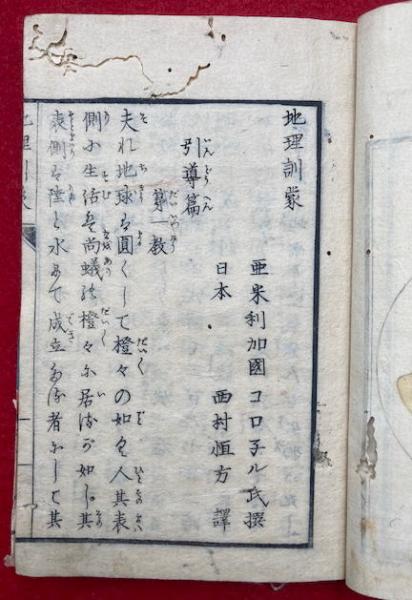 地理訓蒙
亜米利加國 コロ子ル氏撰
日本 西村恒方 譯
引導篇
第一教
夫れ地球は圓くして橙々の如く人其表
側に生活す尚蟻の橙々に居るが如し其
表側は陸と水にて成立たる者にして其
地理訓蒙